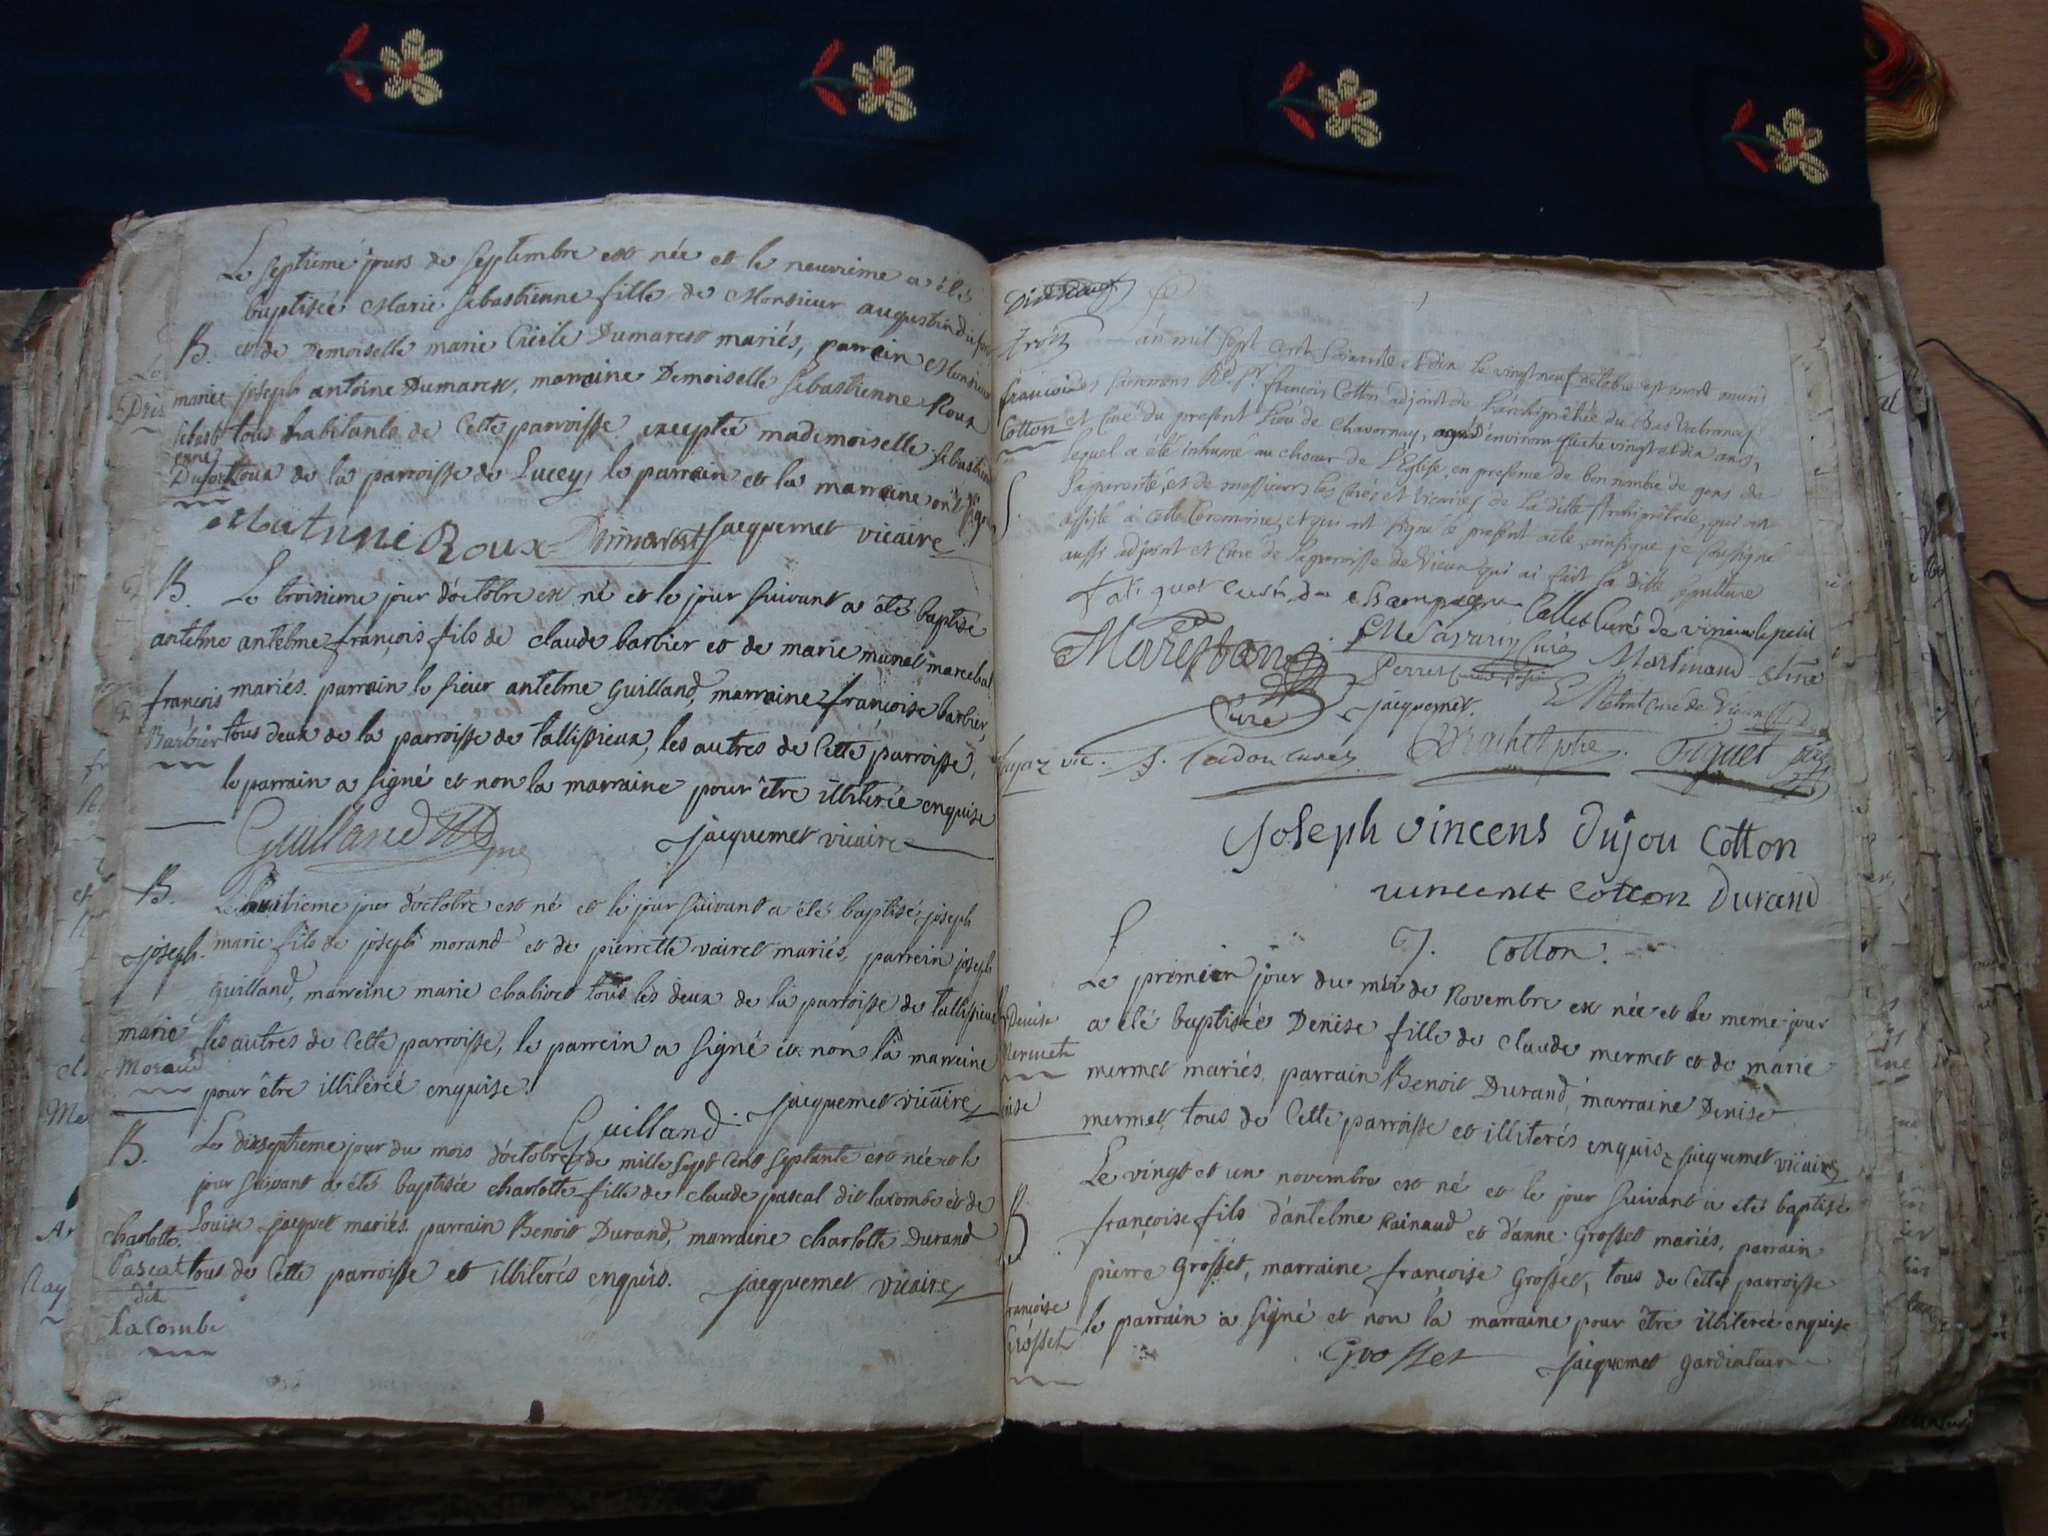 Le septieme jours de septembre est née et le neuvieme a été
baptisée Marie sebastienne fille de Monsieur augustin
B. et de Demoiselle marie Cécile Dumarest mariés, parrain Monsieur
marie joseph antoine Dumarest, marraine Demoiselle Sebastienne Roux
sebasti tous habitants de Cette parroisse exceptée mademoiselle sebastienne
enne
Dufort Roux de la parroisse de Lucey, le parrain et la marraine ont signé
Roux Dumarest jacquemet vicaire
B. Le troisieme jour d'octobre est né et le jour suivant a été baptisé
antelme antelme françois fils de claude barbier et de marie munet marechal
françois mariés. parrain le sieur antelme Guilland, marraine françoise barbier,
Barbier tous deux de la parroisse de tallissieux, les autres de Cette parroisse,
le parrain a signé et non la marraine pour être illiterée enquise
Guilland
jacquemet vicaire
B. Le huitieme jour d'octobre est né et le jour suivant a été baptisé joseph
joseph marie fils de joseph morand et de pierrette vairet mariés, parrein joseph
guilland, marreine marie chalivet tous les deux de la parroisse de tallissieux
marie les autres de Cette parroisse, le parrein a signé et non la marreine
Morand
pour être illiterée enquise.
Guilland. jacquemet vicaire
B. Le dixseptieme jour du mois d'octobre de mille sept cent septante est née et le
jour suivant a été baptisée charlotte fille de claude pascal dit lacombe et de
charlotte Louise jacquet mariés. parrain Benoit Durand, marraine charlotte Durand
Pascal tous de Cette parroisse et illiterés enquis. jacquemet vicaire
dit
La Combe
françois
Cotton
L'an mil sept cent soixante et dix le vingt neuf octobre est mort muni
des sacremens Rd. Sr. françois Cotton adjoint de l'archiprêtré du Bas Valromey
et Curé du present lieu de Chavornay, agé d'environ quatre vingt et dix ans,
lequel a été inhumé au choeur de l'Eglise, en presence de bon nombre de gens de
sa parenté, et de messieurs les Curés et vicaires de la ditte Archiprêtrée, qui ont
assisté à cette Ceremonie, et qui ont signé le present acte, ainsi que je soussigné
aussi adjoint et Curé de la parroisse de Vieu qui ai fait la ditte sepulture
curé de champagne Callet Curé de virieu le petit
Curé Martinand
Perret
Curé jacquemet. Curé de Vieu
vic.
Joseph vincens Dujou Cotton
vincent Cotton Durand
J. Cotton.
Le premier jour du mois de Novembre est née et le meme jour
Denise a été baptisée Denise fille de claude mermet et de marie
Mermet mermet mariés, parrain Benoit Durand, marraine Denise
mermet, tous de Cette parroisse et illiterés enquis jacquemet vicaire
Le vingt et un novembre est né et le jour suivant a été baptisé
B françoise fils d'antelme Rainaud et d'anne Grosset mariés, parrain
pierre Grosset, marraine françoise Grosset, tous de Cette parroisse
françoise le parrain a signé et non la marraine pour être illiterée enquise
Grosset
Grosset jacquemet